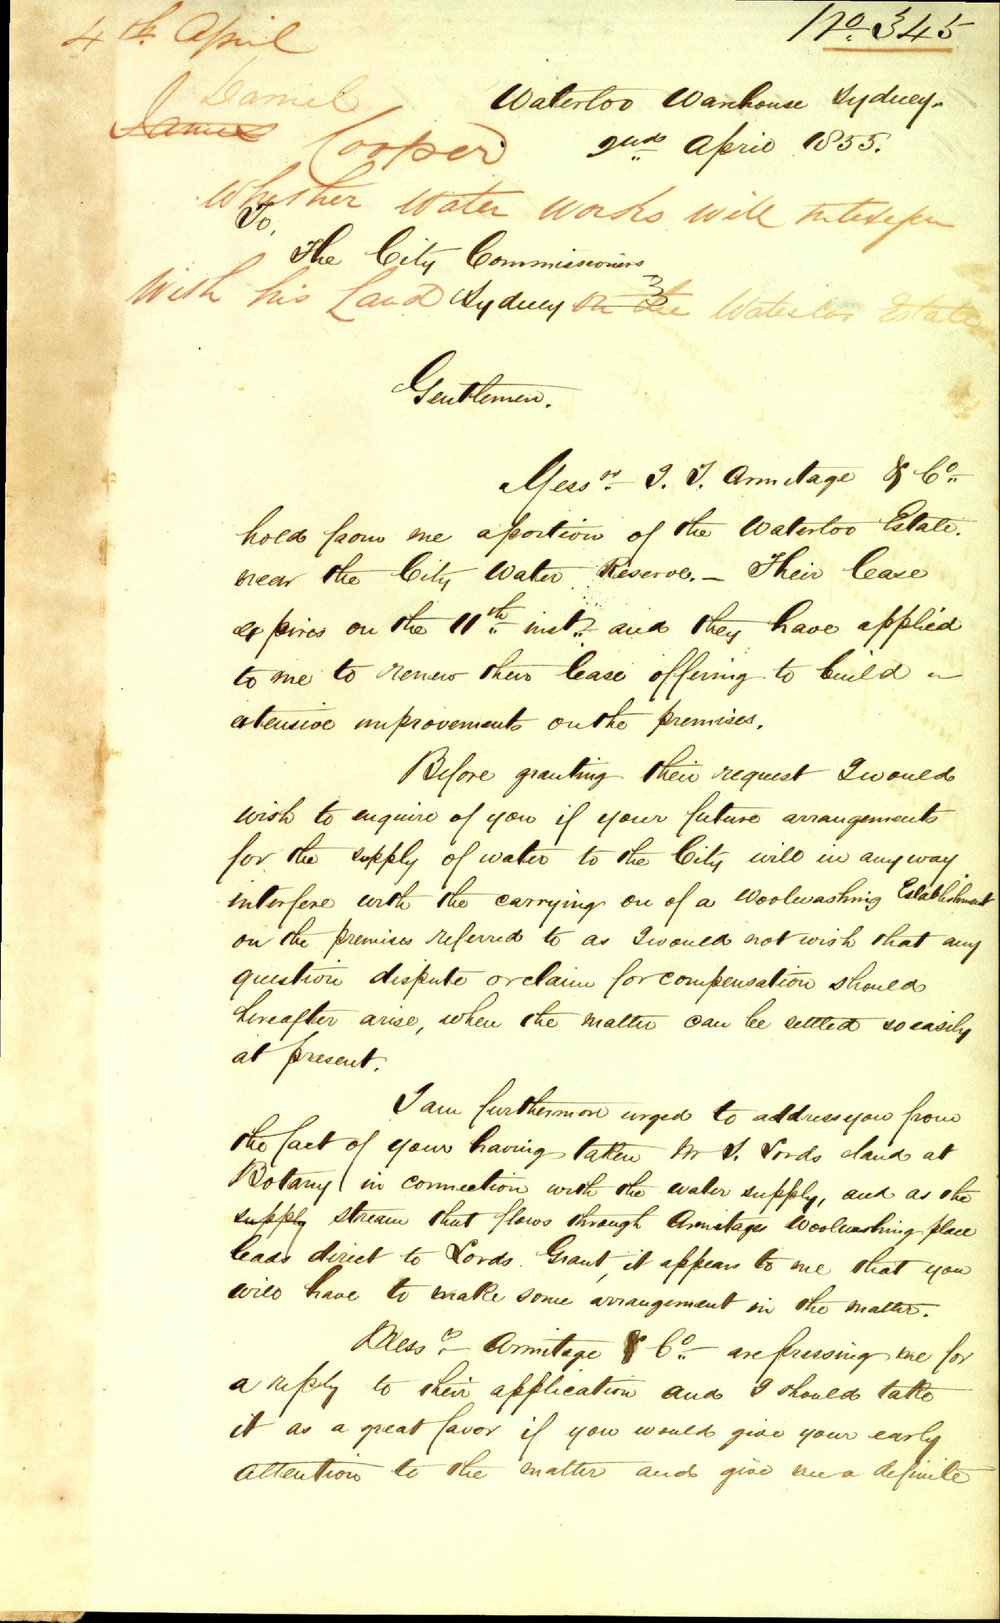 4th April
No. 345
Daniel
James
Cooper
Waterloo Warehouse Sydney.
2nd April 1855.
Whether Water Works will interfere
To,
The City Commissioners
With his Land Sydney on the Waterloo Estate
Gentlemen.
Messrs. J. T. Armitage & Co.
hold from me a portion of the Waterloo Estate.
near the City Water Reserve. — Their lease
expires on the 11th inst. and they have applied
to me to renew their lease offering to build
extensive improvements on the premises.
Before granting their request I would
wish to enquire of you if your future arrangements
for the supply of water to the City will in any way
interfere with the carrying on of a Woolwashing Establishment
on the premises referred to as I would not wish that any
question dispute or claim for compensation should
hereafter arise, when the matter can be settled so easily
at present.
I am furthermore urged to address you from
the fact of your having taken Mr. S. Lords land at
Botany in connection with the water supply, and as the
supply stream that flows through Armitages Woolwashing place
leads direct to Lords Grant, it appears to me that you
will have to make some arrangement in the matter.
Messrs. Armitage & Co. — are pressing me for
a reply to their application and I should take
it as a great favor if you would give your early
attention to the matter and give me a definite